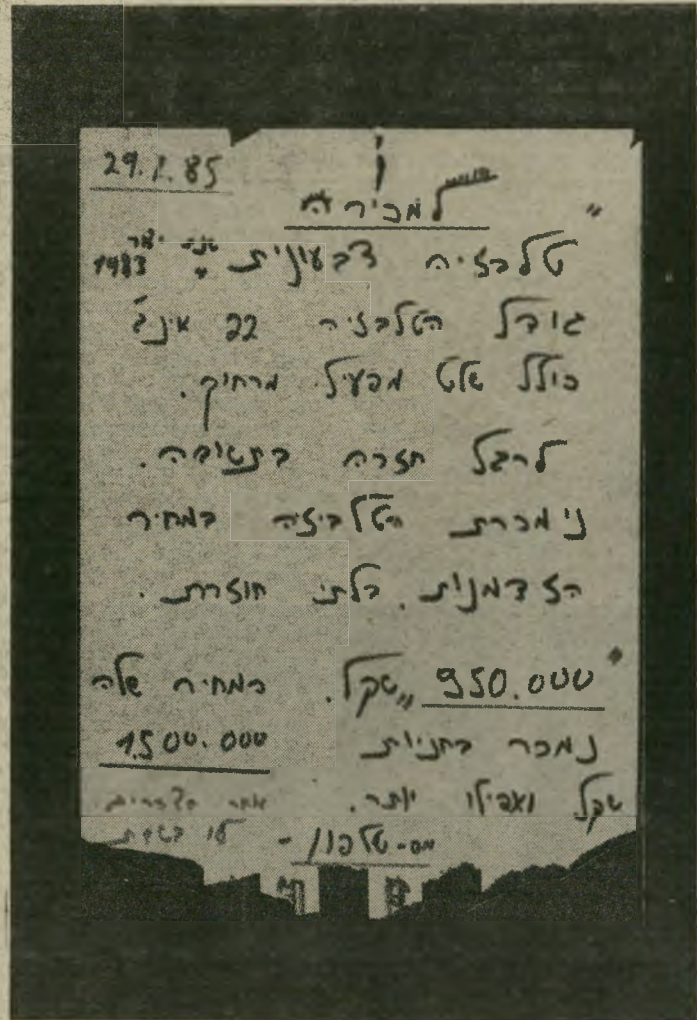 29.1.85
למכירה
טלבזיה צבעונית שנת יצור 1983
גודל הטלבזיה 22 אינצ'
כולל שלט מפעיל מרחוק.
לרגל חזרה בתשובה.
נימכרת הטלביזיה במחיר
הזדמנות בלתי חוזרת.
950.000 שקל. המחיר שלה
נמכר בחניות 1.500.000
שקל ואפילו יותר.
מס-טלפון -